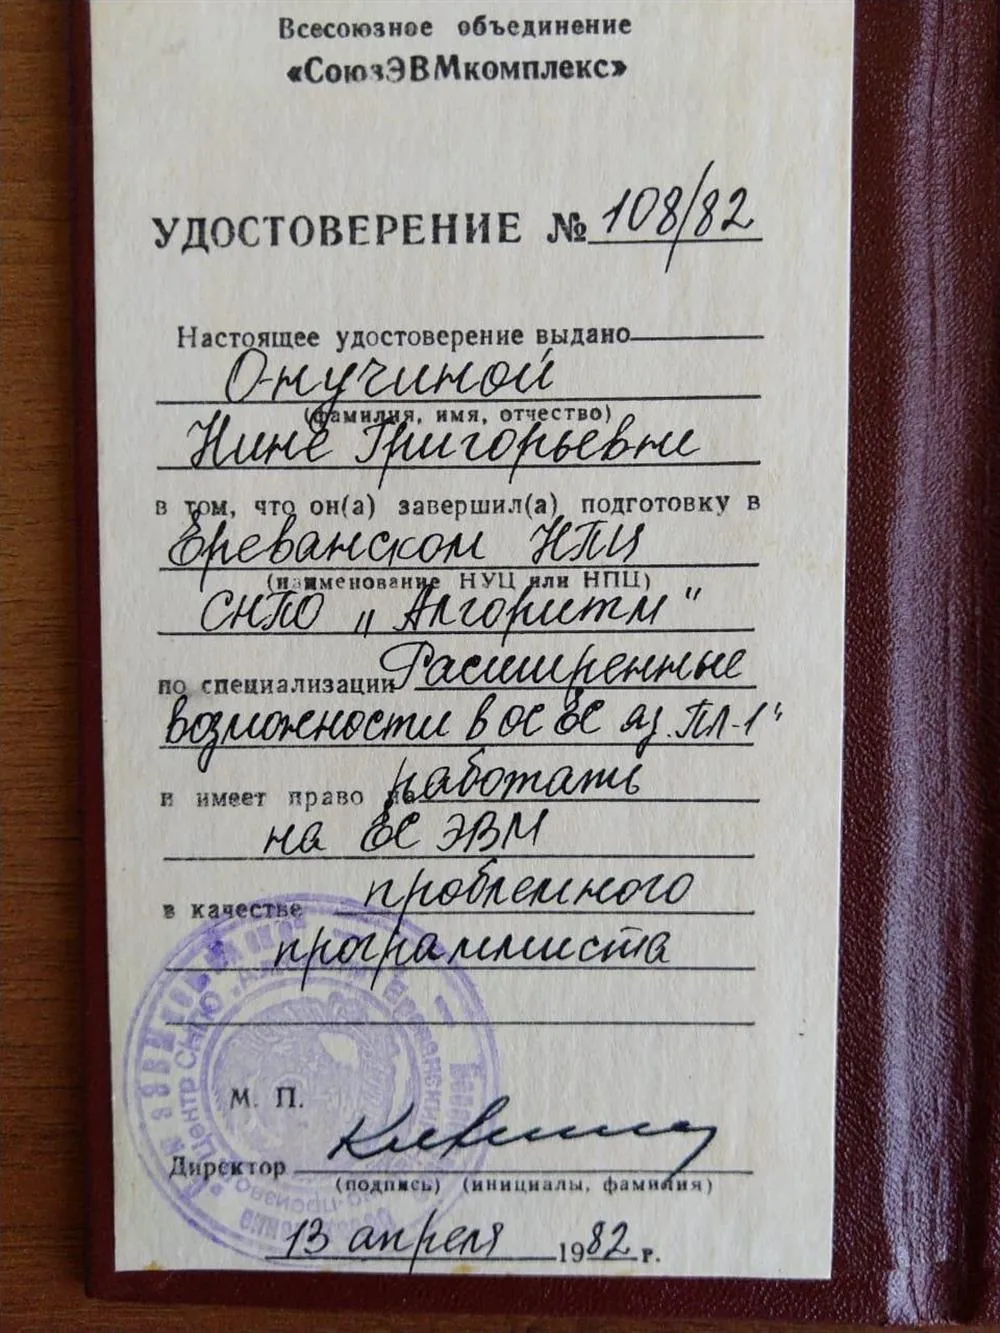 Всесоюзное объединение
«СоюзЭВМкомплекс»
УДОСТОВЕРЕНИЕ № 108/82
Настоящее удостоверение выдано
Онучиной
(фамилия, имя, отчество)
Нине Григорьевне
в том, что он(а) завершил(а) подготовку в
Ереванском НПЦ
(наименование НУЦ или НПЦ)
СНПО „Алгоритм"
по специализации Расширенные
возможности в ОС ЕС яз. „ПЛ-1"
и имеет право на работать
на ЕС ЭВМ
в качестве проблемного
программиста
М. П.
Директор
(подпись) (инициалы, фамилия)
13 апреля 1982 г.